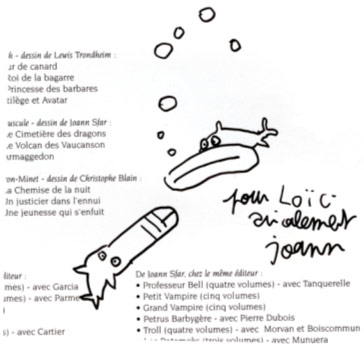 h - dessin de Lewis Trondheim :
ur de canard
Roi de la bagarre
Princesse des barbares
tilège et Avatar
uscule - dessin de Joann Sfar :
e Cimetière des dragons
e Volcan des Vaucanson
urmaggedon
on-Minet - dessin de Christophe Blain :
a Chemise de la nuit
Un justicier dans l'ennui
Une jeunesse qui s'enfuit
pour Loïc
amicalement
joann
diteur :
mes) - avec Garcia
umes) - avec Parme
s) - avec Cartier
De Joann Sfar, chez le même éditeur :
• Professeur Bell (quatre volumes) - avec Tanquerelle
• Petit Vampire (cinq volumes)
• Grand Vampire (cinq volumes)
• Petrus Barbygère - avec Pierre Dubois
• Troll (quatre volumes) - avec Morvan et Boiscommun
(trois volumes) - avec Munuera